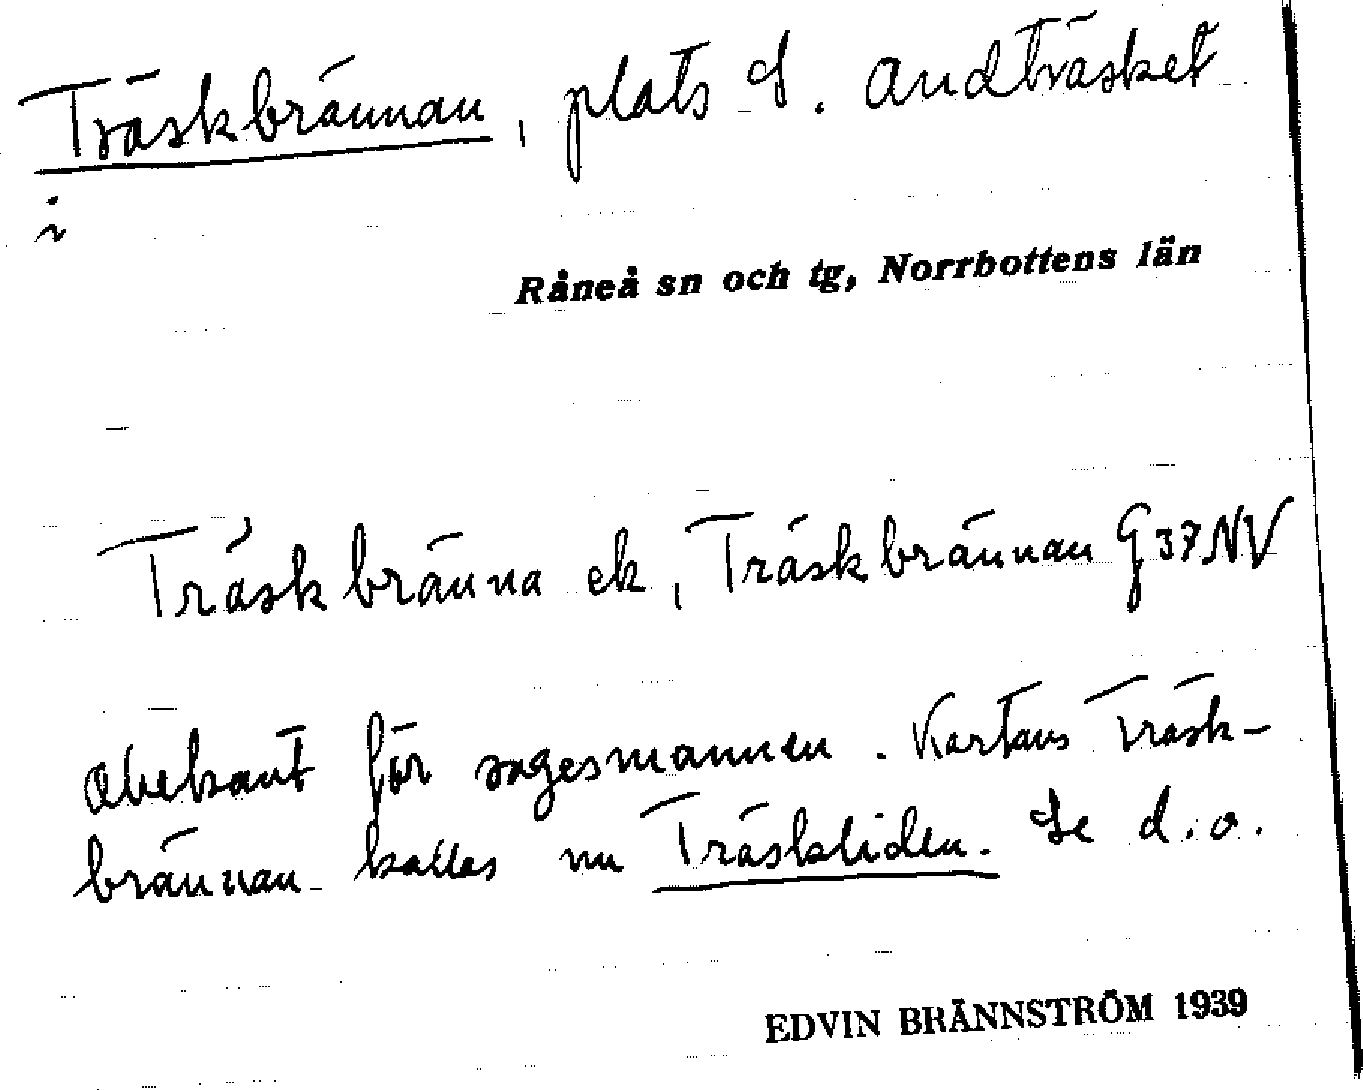 Träskbrännan, plats S. Andträsket
i
Råneå sn och tg, Norrbottens län
Träskbränna ek, Träskbrännan G 37 NV
Obekant för sagesmannen. Kartans Träsk-
brännan kallas nu Träskliden. Se d.o.
EDVIN BRÄNNSTRÖM 1939